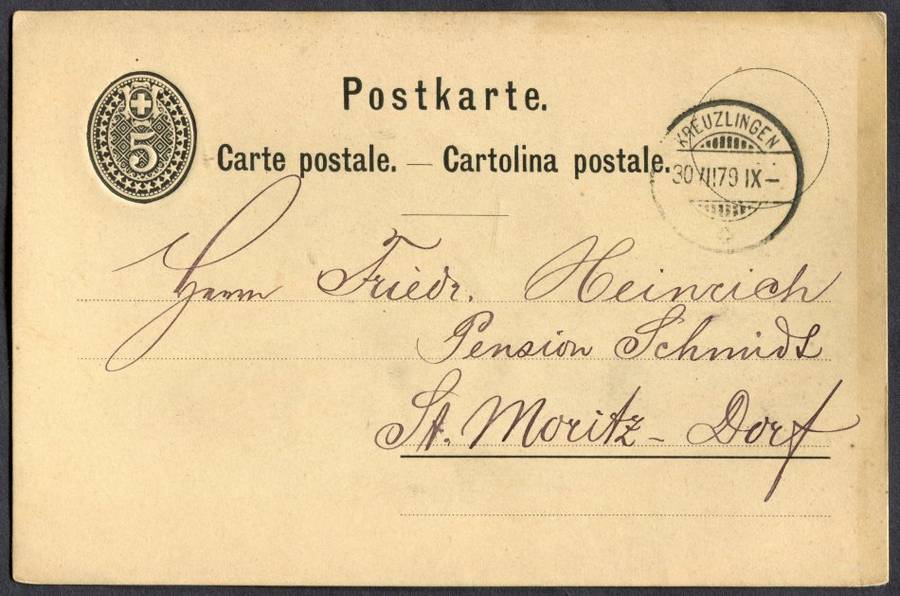 Postkarte.
5
Carte postale. — Cartolina postale.
KREUZLINGEN
30 VII 79 IX –
Herrn Friedr. Heinrich
Pension Schmidt
St. Moritz - Dorf